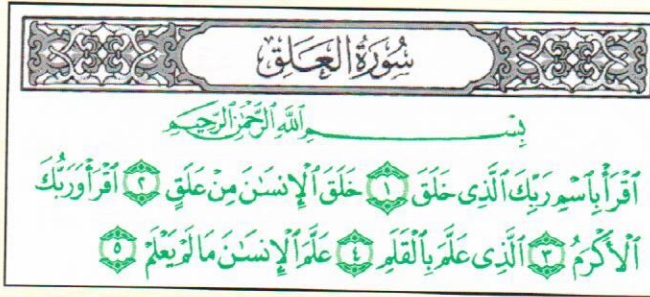 سُورَةُ الْعَلَقِ
بِسْمِ ٱللَّهِ ٱلرَّحْمَٰنِ ٱلرَّحِيمِ
ٱقْرَأْ بِٱسْمِ رَبِّكَ ٱلَّذِى خَلَقَ ١ خَلَقَ ٱلْإِنسَٰنَ مِنْ عَلَقٍ ٢ ٱقْرَأْ وَرَبُّكَ
ٱلْأَكْرَمُ ٣ ٱلَّذِى عَلَّمَ بِٱلْقَلَمِ ٤ عَلَّمَ ٱلْإِنسَٰنَ مَا لَمْ يَعْلَمْ ٥